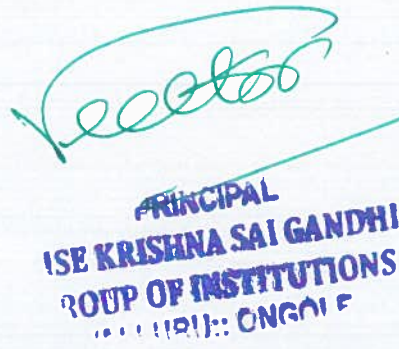 PRINCIPAL
ISE KRISHNA SAI GANDHI
ROUP OF INSTITUTIONS
ONGOLE